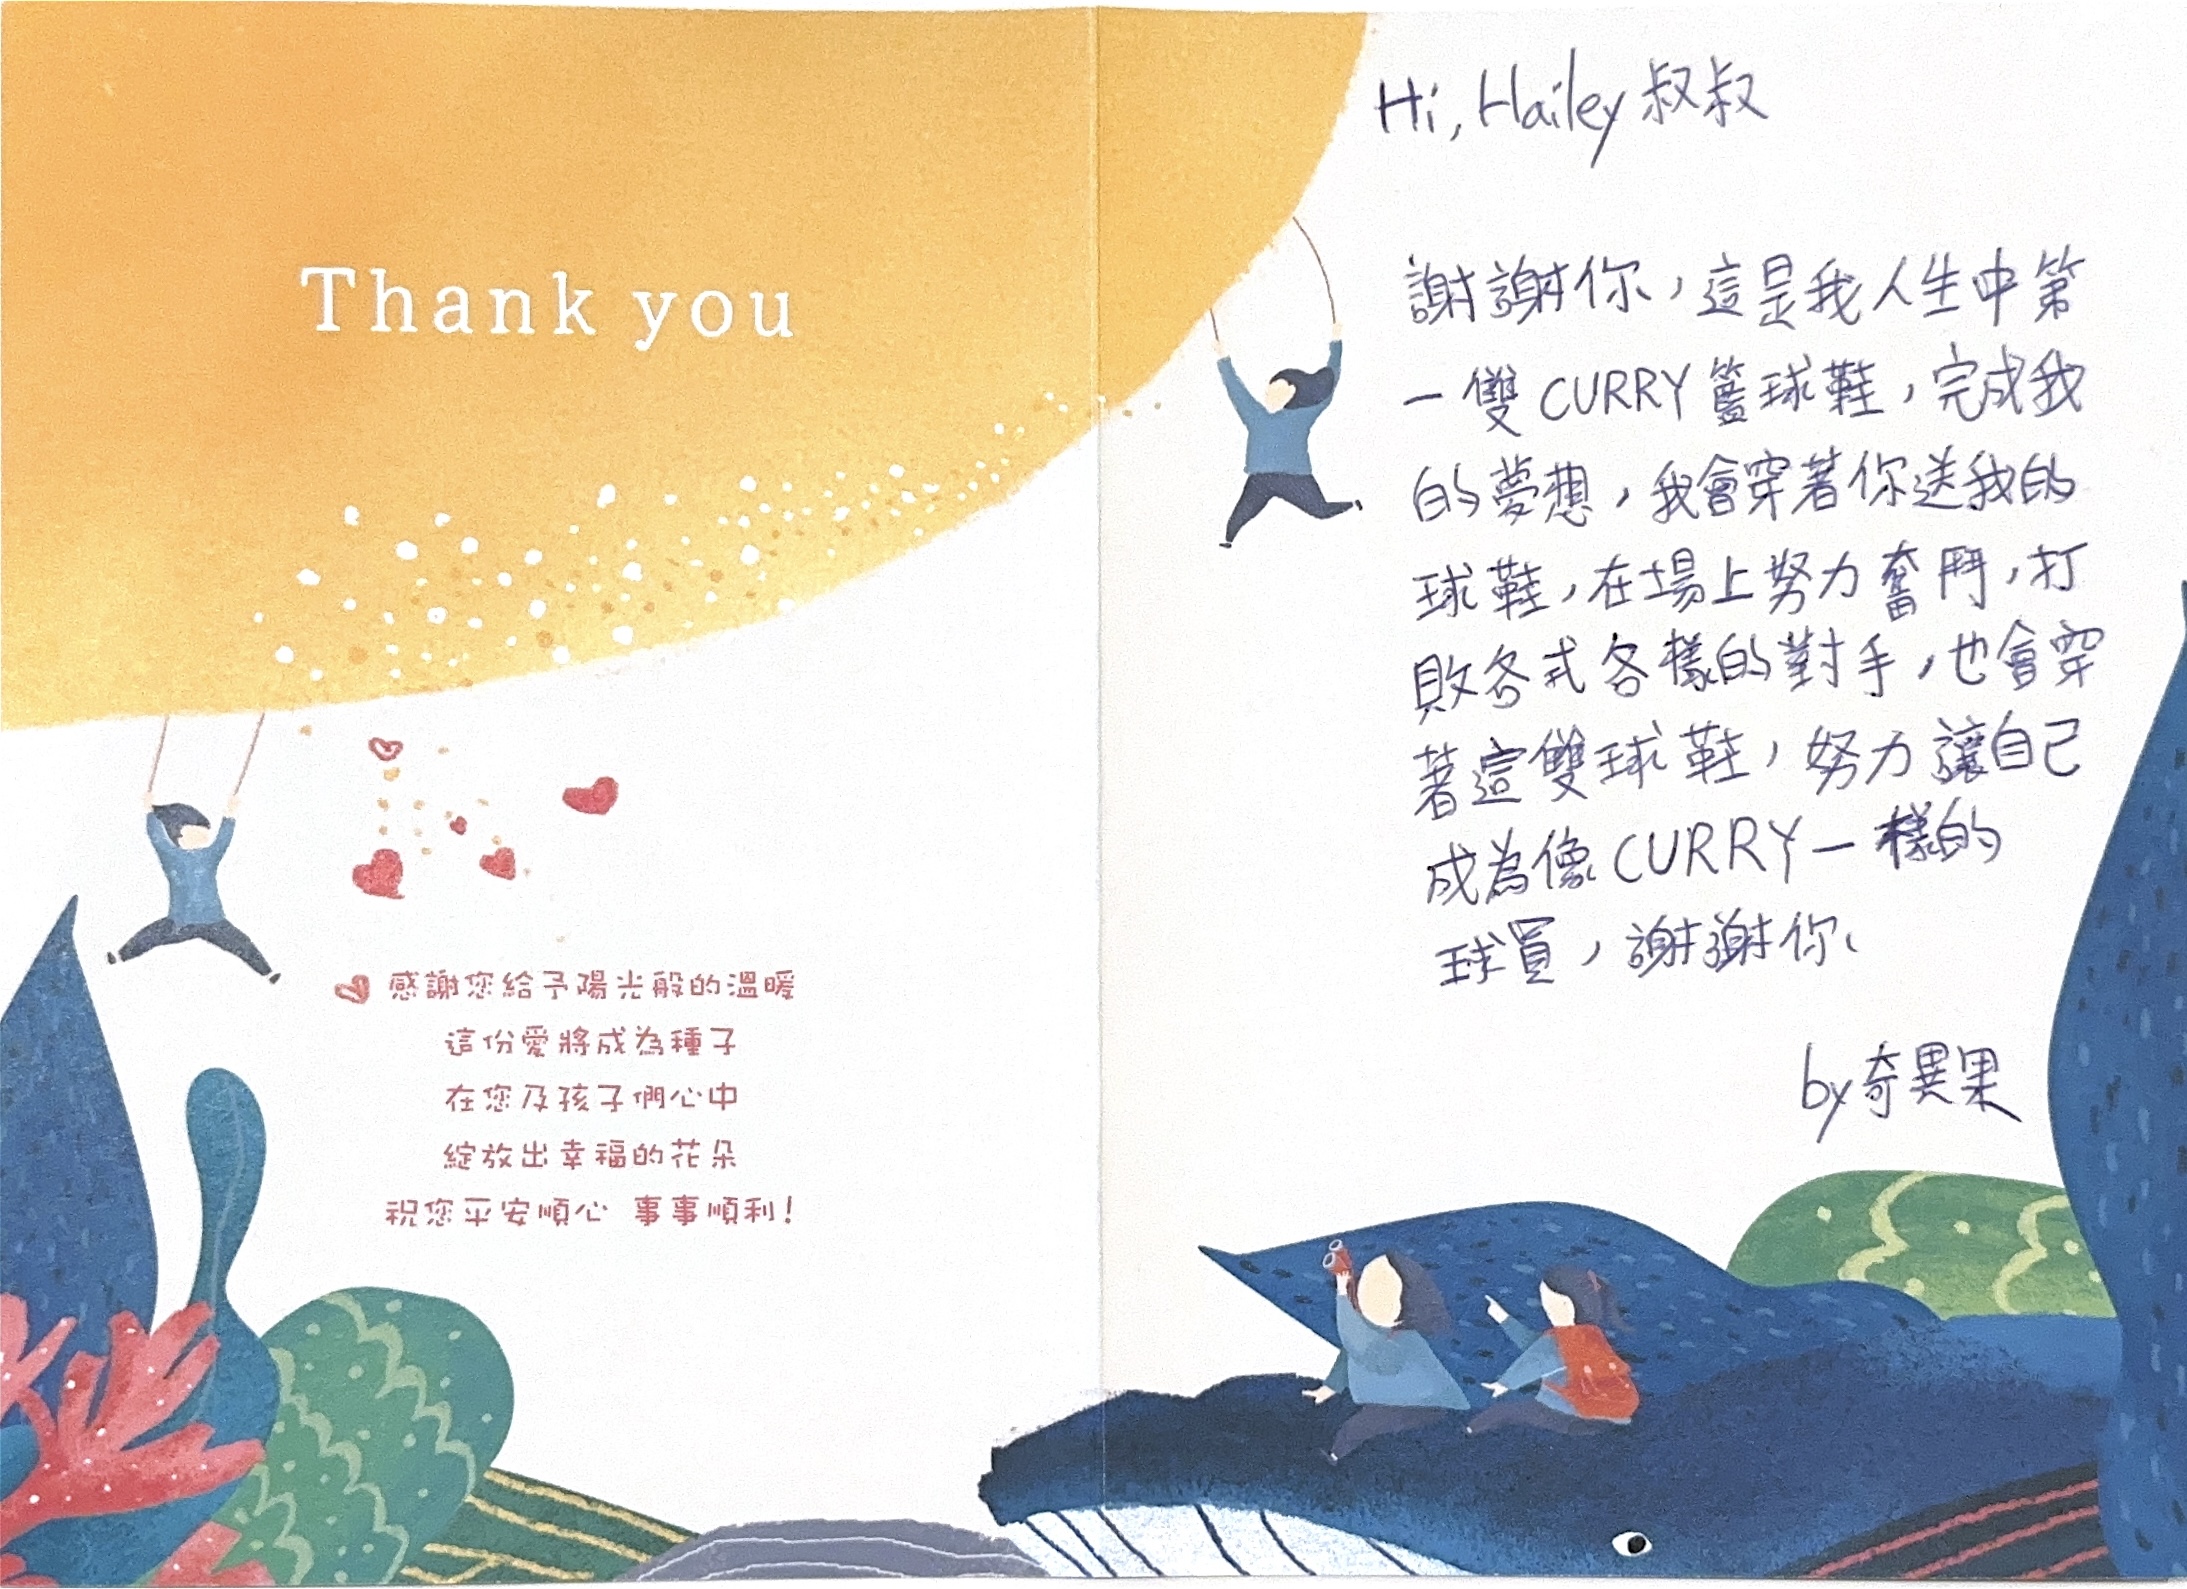 Thank you
感謝您給予陽光般的溫暖
這份愛將成為種子
在您及孩子們心中
綻放出幸福的花朵
祝您平安順心 事事順利!
Hi, Hailey 叔叔
謝謝你，這是我人生中第
一雙CURRY籃球鞋，完成我
的夢想，我會穿著你送我的
球鞋，在場上努力奮鬥，打
敗各式各樣的對手，也會穿
著這雙球鞋，努力讓自己
成為像CURRY一樣的
球員，謝謝你、
by奇異果